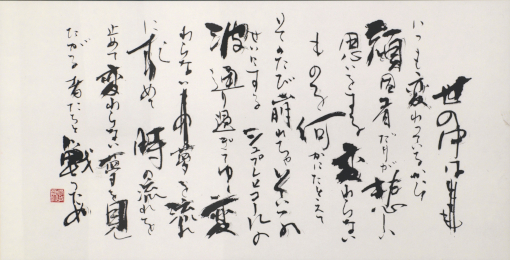 世の中は
いつも変わっているから
頑固者だけが悲しい
思いをする変わらない
ものを何かにたとえて
そのたび崩れちゃそいつの
せいにするシュプレヒコールの
波通り過ぎてゆく変
わらない夢を流れ
に求めて時の流れを
止めて変わらない夢を見
たがる者たちと戦うため